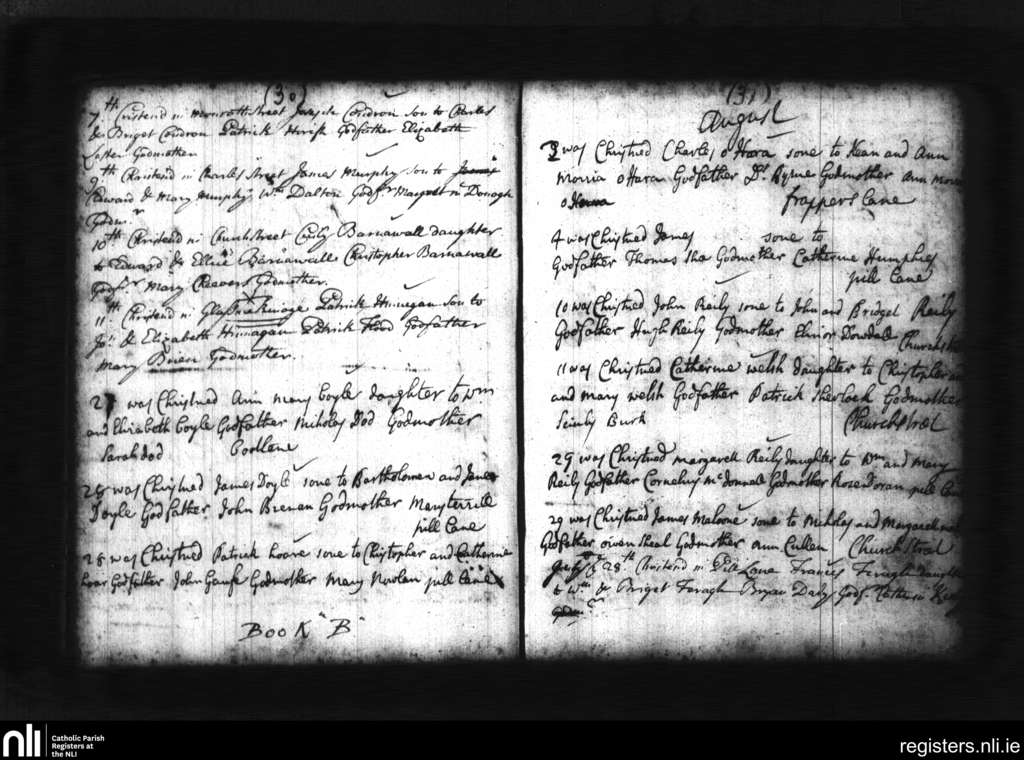 (30)
7th Cristend in Monroth Street Joseph Condron Son to Charles
& Briget Condron Patrick Godfather Elizabeth
Godmother
9th Christend in Charles Street James Murphy Son to
Edward & Mary Murphy Wm Dalton Godfr Margret mc Donogh
Godmr
10th Christend in Church Street Barnawall daughter
to Edward & Barnawell Christopher Barnawall
Godfr Mary Cheevers Godmother.
11th Christend in Patrick Hinnegan Son to
Jno & Elizabeth Hinnagan Patrick Godfather
Mary Brien Godmother.
27 was Christned Ann mary boyle daughter to Wm
and Elizabeth boyle Godfather Nicholas Dod Godmother
Sarah dod
28 was Christned James Doyle sone to Bartholomew and
Doyle Godfather John Brenan Godmother Mary
pill Lane
28 was Christned Patrick hoare sone to Christopher and Catherine
hoar Godfather John Godmother Mary Nowlan pill Lane
BOOK "B"
(31)
August
3 was Christned Charles o Hara sone to Kean and Ann
Morria o Hara Godfather Dr. Byrne Godmother Ann
o frappers Lane
4 was Christned James sone to
Godfather Thomas Sha Godmother Catherine Humphies
pill Lane
10 was Christned John Reily sone to John and Bridget Reily
Godfather Hugh Reily Godmother Elinor Dowdall
11 was Christned Catherine welsh daughter to Christopher
and mary welsh Godfather Patrick Sherlock Godmother
Burk Church Street
29 was Christned margarett Reily daughter to Wm and Mary
Reily Godfather Cornelius mc donnell Godmother Rose Doran pill
29 was Christned James Malone sone to Nicholas and Margaret
Godfather owen Sheal Godmother Ann Cullen Church Street
28th Christend in Pill Lane Francis Feragh daughter
to Wm & Briget Feragh Bryan Daly Godfr
nli
Catholic Parish
Registers at
the NLI
registers.nli.ie